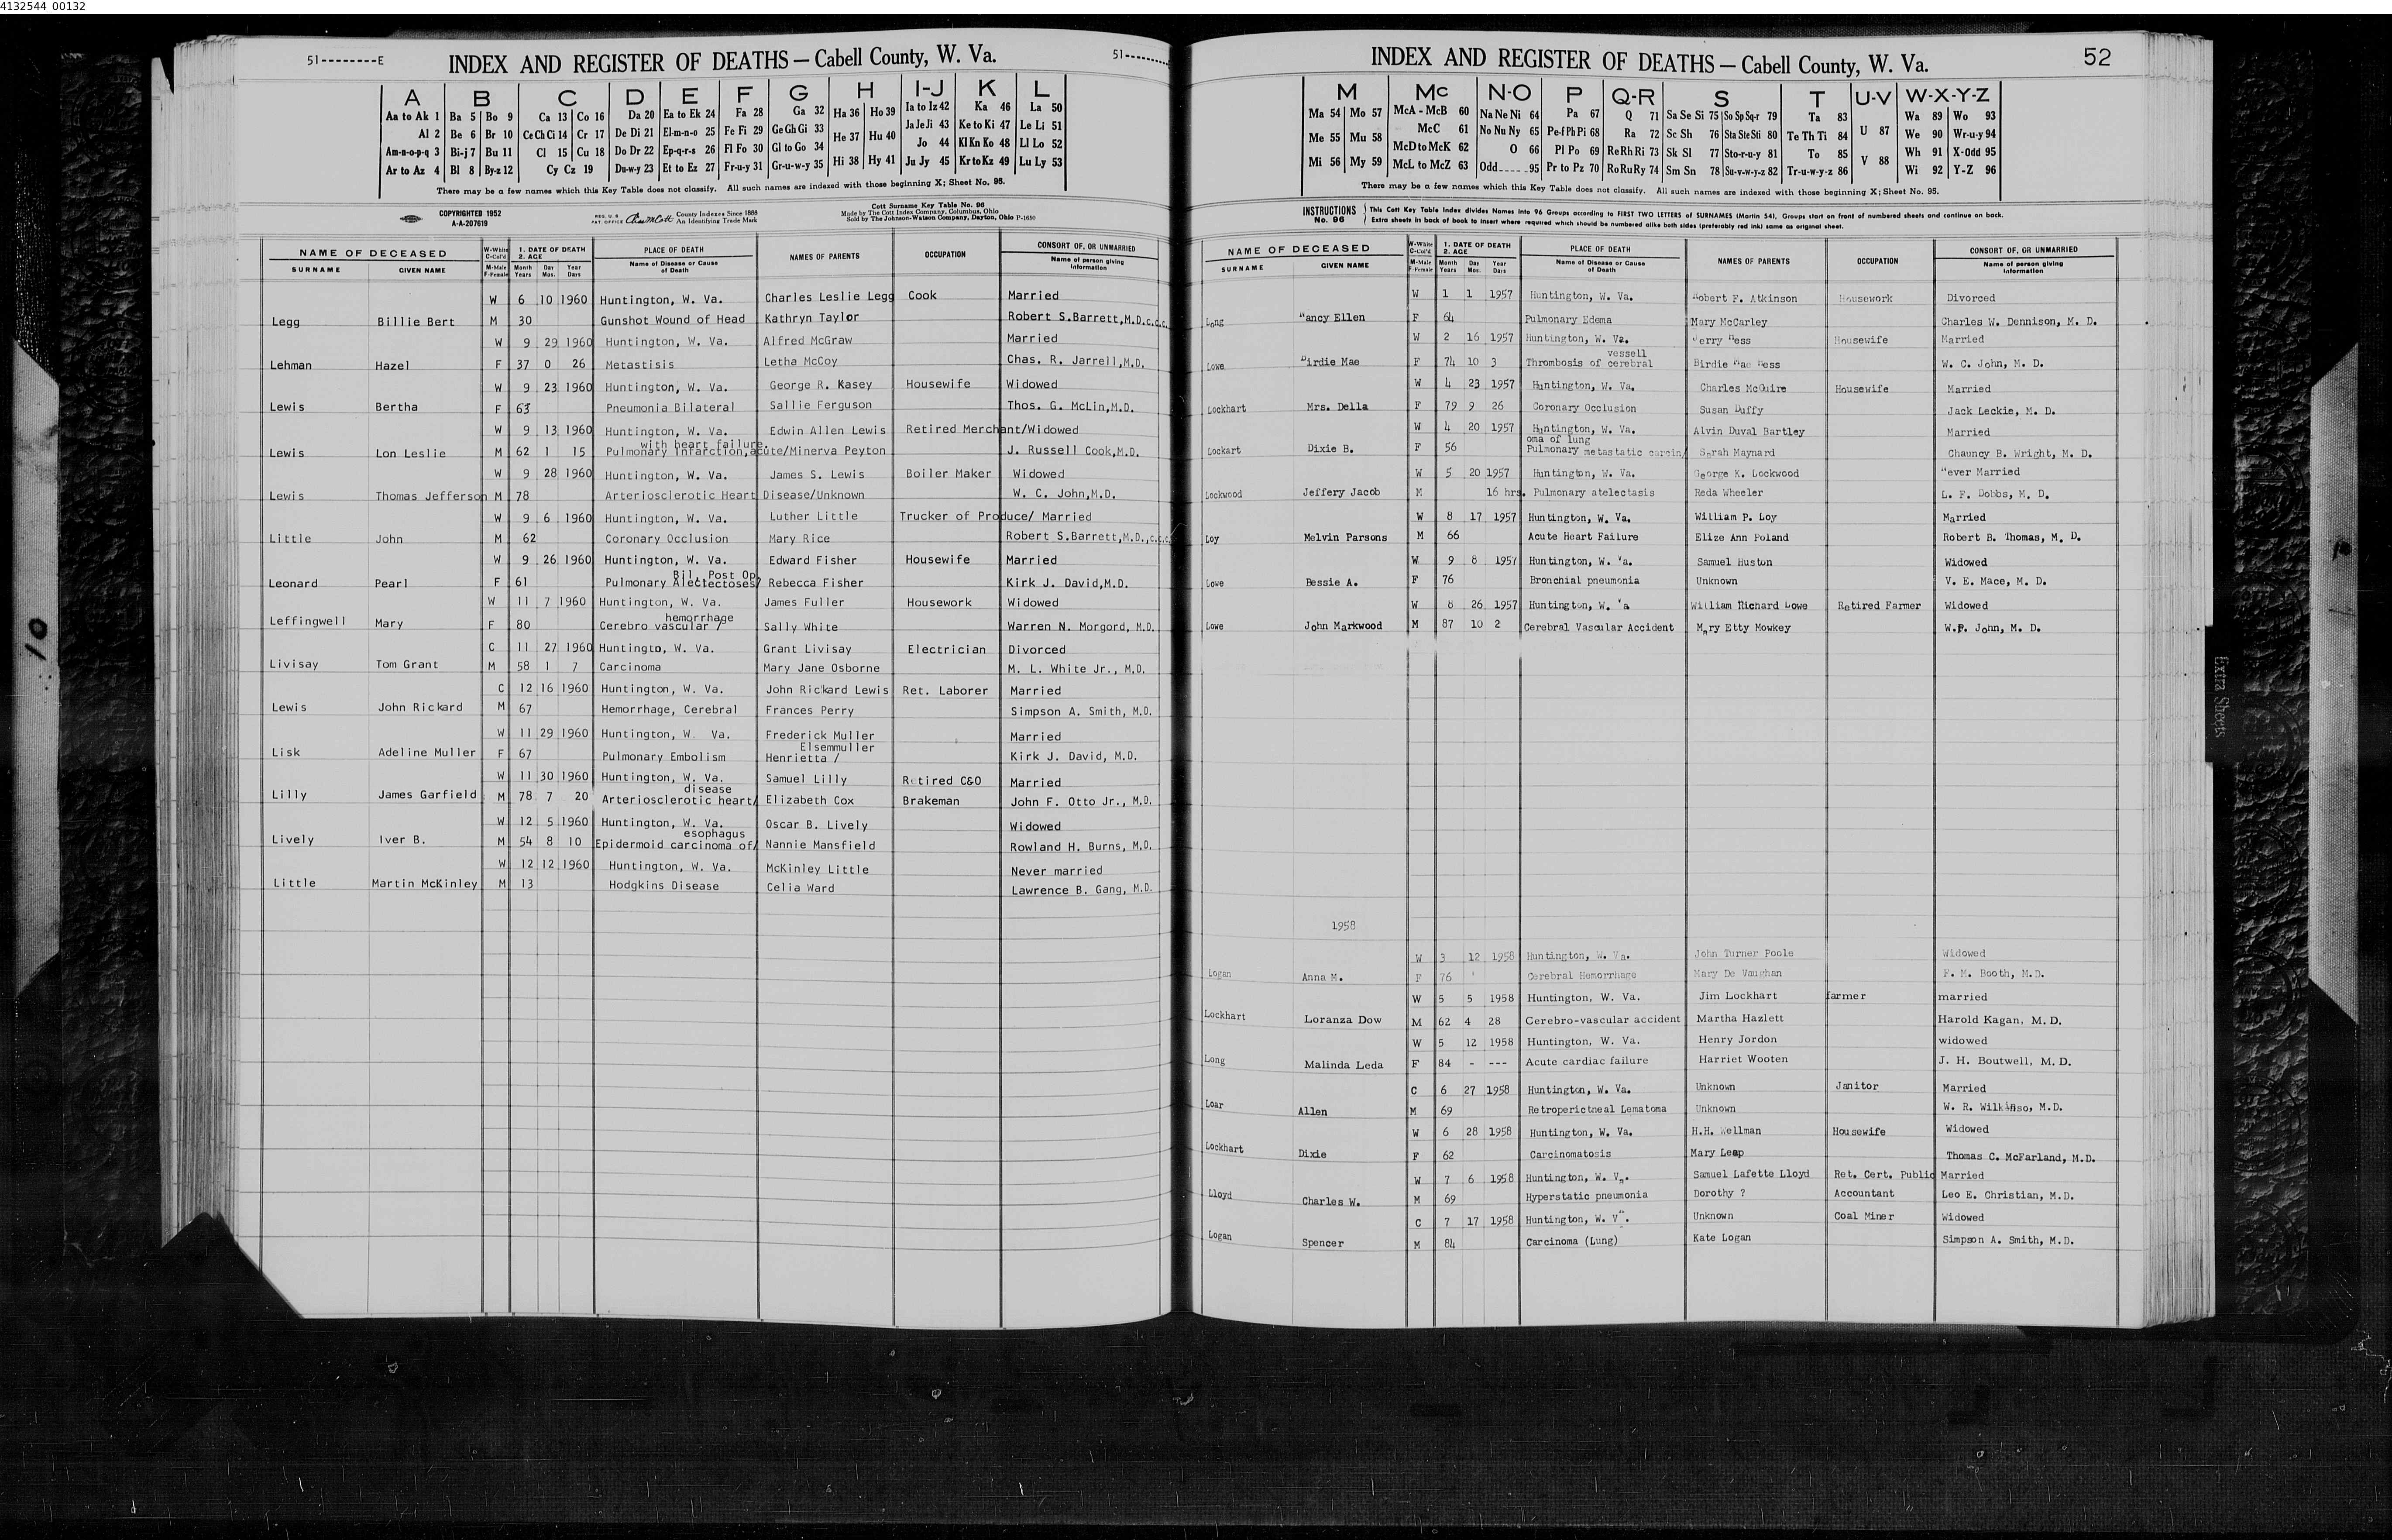 4132544_00132
51--------E
INDEX AND REGISTER OF DEATHS — Cabell County, W. Va.
51--------
A B C D E F G H I-J K L
Aa to Ak 1 Ba 5 Bo 9 Ca 13 Co 16 Da 20 Ea to Ek 24 Fa 28 Ga 32 Ha 36 Ho 39 Ia to Iz 42 Ka 46 La 50
Al 2 Be 6 Br 10 Ce Ch Ci 14 Cr 17 De Di 21 El-m-n-o 25 Fe Fi 29 Ge Gh Gi 33 He 37 Hu 40 Ja Je Ji 43 Ke to Ki 47 Le Li 51
Am-n-o-p-q 3 Bi-j 7 Bu 11 Cl 15 Cu 18 Do Dr 22 Ep-q-r-s 26 Fl Fo 30 Gl to Go 34 Jo 44 Kl Kn Ko 48 Ll Lo 52
Ar to Az 4 Bl 8 By-z 12 Cy Cz 19 Du-w-y 23 Et to Ez 27 Fr-u-y 31 Gr-u-w-y 35 Hi 38 Hy 41 Ju Jy 45 Kr to Kz 49 Lu Ly 53
There may be a few names which this Key Table does not classify. All such names are indexed with those beginning X; Sheet No. 95.
COPYRIGHTED 1952
A-A-207619
REG. U. S. PAT. OFFICE County Indexes Since 1888 An Identifying Trade Mark
Cott Surname Key Table No. 96
Made by The Cott Index Company, Columbus, Ohio
Sold by The Johnson-Watson Company, Dayton, Ohio P-1650
NAME OF DECEASED W-White C-Col'd 1. DATE OF DEATH 2. AGE PLACE OF DEATH NAMES OF PARENTS OCCUPATION CONSORT OF, OR UNMARRIED
SURNAME GIVEN NAME M-Male F-Female Month Years Day Mos. Year Days Name of Disease or Cause of Death Name of person giving information
W 6 10 1960 Huntington, W. Va. Charles Leslie Legg Cook Married
Legg Billie Bert M 30 Gunshot Wound of Head Kathryn Taylor Robert S.Barrett,M.D.c.c.c.
W 9 29 1960 Huntington, W. Va. Alfred McGraw Married
Lehman Hazel F 37 0 26 Metastisis Letha McCoy Chas. R. Jarrell,M.D.
W 9 23 1960 Huntington, W. Va. George R. Kasey Housewife Widowed
Lewis Bertha F 63 Pneumonia Bilateral Sallie Ferguson Thos. G. McLin,M.D.
W 9 13 1960 Huntington, W. Va. Edwin Allen Lewis Retired Merchant/Widowed
with heart failure.
Lewis Lon Leslie M 62 1 15 Pulmonary Infarction,acute/Minerva Peyton J. Russell Cook,M.D.
W 9 28 1960 Huntington, W. Va. James S. Lewis Boiler Maker Widowed
Lewis Thomas Jefferson M 78 Arteriosclerotic Heart Disease/Unknown W. C. John,M.D.
W 9 6 1960 Huntington, W. Va. Luther Little Trucker of Produce/ Married
Little John M 62 Coronary Occlusion Mary Rice Robert S.Barrett,M.D.,c.c.c.
W 9 26 1960 Huntington, W. Va. Edward Fisher Housewife Married
Bil. Post Op
Leonard Pearl F 61 Pulmonary Alectectoses/ Rebecca Fisher Kirk J. David,M.D.
W 11 7 1960 Huntington, W. Va. James Fuller Housework Widowed
hemorrhage
Leffingwell Mary F 80 Cerebro vascular / Sally White Warren N. Morgord, M.D.
C 11 27 1960 Huntingto, W. Va. Grant Livisay Electrician Divorced
Livisay Tom Grant M 58 1 7 Carcinoma Mary Jane Osborne M. L. White Jr., M.D.
C 12 16 1960 Huntington, W. Va. John Rickard Lewis Ret. Laborer Married
Lewis John Rickard M 67 Hemorrhage, Cerebral Frances Perry Simpson A. Smith, M.D.
W 11 29 1960 Huntington, W. Va. Frederick Muller Married
Elsemmuller
Lisk Adeline Muller F 67 Pulmonary Embolism Henrietta / Kirk J. David, M.D.
W 11 30 1960 Huntington, W. Va. Samuel Lilly Retired C&O Married
disease
Lilly James Garfield M 78 7 20 Arteriosclerotic heart/ Elizabeth Cox Brakeman John F. Otto Jr., M.D.
W 12 5 1960 Huntington, W. Va. Oscar B. Lively Widowed
esophagus
Lively Iver B. M 54 8 10 Epidermoid carcinoma of/ Nannie Mansfield Rowland H. Burns, M.D.
W 12 12 1960 Huntington, W. Va. McKinley Little Never married
Little Martin McKinley M 13 Hodgkins Disease Celia Ward Lawrence B. Gang, M.D.
INDEX AND REGISTER OF DEATHS — Cabell County, W. Va.
52
M Mc N-O P Q-R S T U-V W-X-Y-Z
Ma 54 Mo 57 McA - McB 60 Na Ne Ni 64 Pa 67 Q 71 Sa Se Si 75 So Sp Sq-r 79 Ta 83 U 87 Wa 89 Wo 93
Me 55 Mu 58 McC 61 No Nu Ny 65 Pe-f Ph Pi 68 Ra 72 Sc Sh 76 Sta Ste Sti 80 Te Th Ti 84 We 90 Wr-u-y 94
McD to McK 62 O 66 Pl Po 69 Re Rh Ri 73 Sk Sl 77 Sto-r-u-y 81 To 85 V 88 Wh 91 X-Odd 95
Mi 56 My 59 McL to McZ 63 Odd-----95 Pr to Pz 70 Ro Ru Ry 74 Sm Sn 78 Su-v-w-y-z 82 Tr-u-w-y-z 86 Wi 92 Y-Z 96
There may be a few names which this Key Table does not classify. All such names are indexed with those beginning X; Sheet No. 95.
INSTRUCTIONS No. 96
This Cott Key Table Index divides Names into 96 Groups according to FIRST TWO LETTERS of SURNAMES (Martin 54), Groups start on front of numbered sheets and continue on back.
Extra sheets in back of book to insert where required which should be numbered alike both sides (preferably red ink) same as original sheet.
NAME OF DECEASED W-White C-Col'd 1. DATE OF DEATH 2. AGE PLACE OF DEATH NAMES OF PARENTS OCCUPATION CONSORT OF, OR UNMARRIED
SURNAME GIVEN NAME M-Male F-Female Month Years Day Mos. Year Days Name of Disease or Cause of Death Name of person giving information
W 1 1 1957 Huntington, W. Va. Robert F. Atkinson Housework Divorced
Long Nancy Ellen F 64 Pulmonary Edema Mary McCarley Charles W. Dennison, M. D.
W 2 16 1957 Huntington, W. Va. Jerry Hess Housewife Married
vessell
Lowe Birdie Mae F 74 10 3 Thrombosis of cerebral Birdie Mae Hess W. C. John, M. D.
W 4 23 1957 Huntington, W. Va. Charles McGuire Housewife Married
Lockhart Mrs. Della F 79 9 26 Coronary Occlusion Susan Duffy Jack Leckie, M. D.
W 4 20 1957 Huntington, W. Va. Alvin Duval Bartley Married
oma of lung
Lockart Dixie B. F 56 Pulmonary metastatic carcin/ Sarah Maynard Chauncy B. Wright, M. D.
W 5 20 1957 Huntington, W. Va. George K. Lockwood Never Married
Lockwood Jeffery Jacob M 16 hrs. Pulmonary atelectasis Reda Wheeler L. F. Dobbs, M. D.
W 8 17 1957 Huntington, W. Va. William P. Loy Married
Loy Melvin Parsons M 66 Acute Heart Failure Elize Ann Poland Robert B. Thomas, M. D.
W 9 8 1957 Huntington, W. Va. Samuel Huston Widowed
Lowe Bessie A. F 76 Bronchial pneumonia Unknown V. E. Mace, M. D.
W 8 26 1957 Huntington, W. Va William Richard Lowe Retired Farmer Widowed
Lowe John Markwood M 87 10 2 Cerebral Vascular Accident Mary Etty Mowkey W.P. John, M. D.
1958
W 3 12 1958 Huntington, W. Va. John Turner Poole Widowed
Logan Anna M. F 76 Cerebral Hemorrhage Mary De Vaughan F. M. Booth, M.D.
W 5 5 1958 Huntington, W. Va. Jim Lockhart farmer married
Lockhart Loranza Dow M 62 4 28 Cerebro-vascular accident Martha Hazlett Harold Kagan, M. D.
W 5 12 1958 Huntington, W. Va. Henry Jordon widowed
Long Malinda Leda F 84 - --- Acute cardiac failure Harriet Wooten J. H. Boutwell, M. D.
C 6 27 1958 Huntington, W. Va. Unknown Janitor Married
Loar Allen M 69 Retroperictneal Lematoma Unknown W. R. Wilkinso, M.D.
W 6 28 1958 Huntington, W. Va. H.H. Wellman Housewife Widowed
Lockhart Dixie F 62 Carcinomatosis Mary Leap Thomas C. McFarland, M.D.
W 7 6 1958 Huntington, W. Va. Samuel Lafette Lloyd Ret. Cert. Public Married
Lloyd Charles W. M 69 Hyperstatic pneumonia Dorothy ? Accountant Leo E. Christian, M.D.
C 7 17 1958 Huntington, W. Va. Unknown Coal Miner Widowed
Logan Spencer M 84 Carcinoma (Lung) Kate Logan Simpson A. Smith, M.D.
Extra Sheets